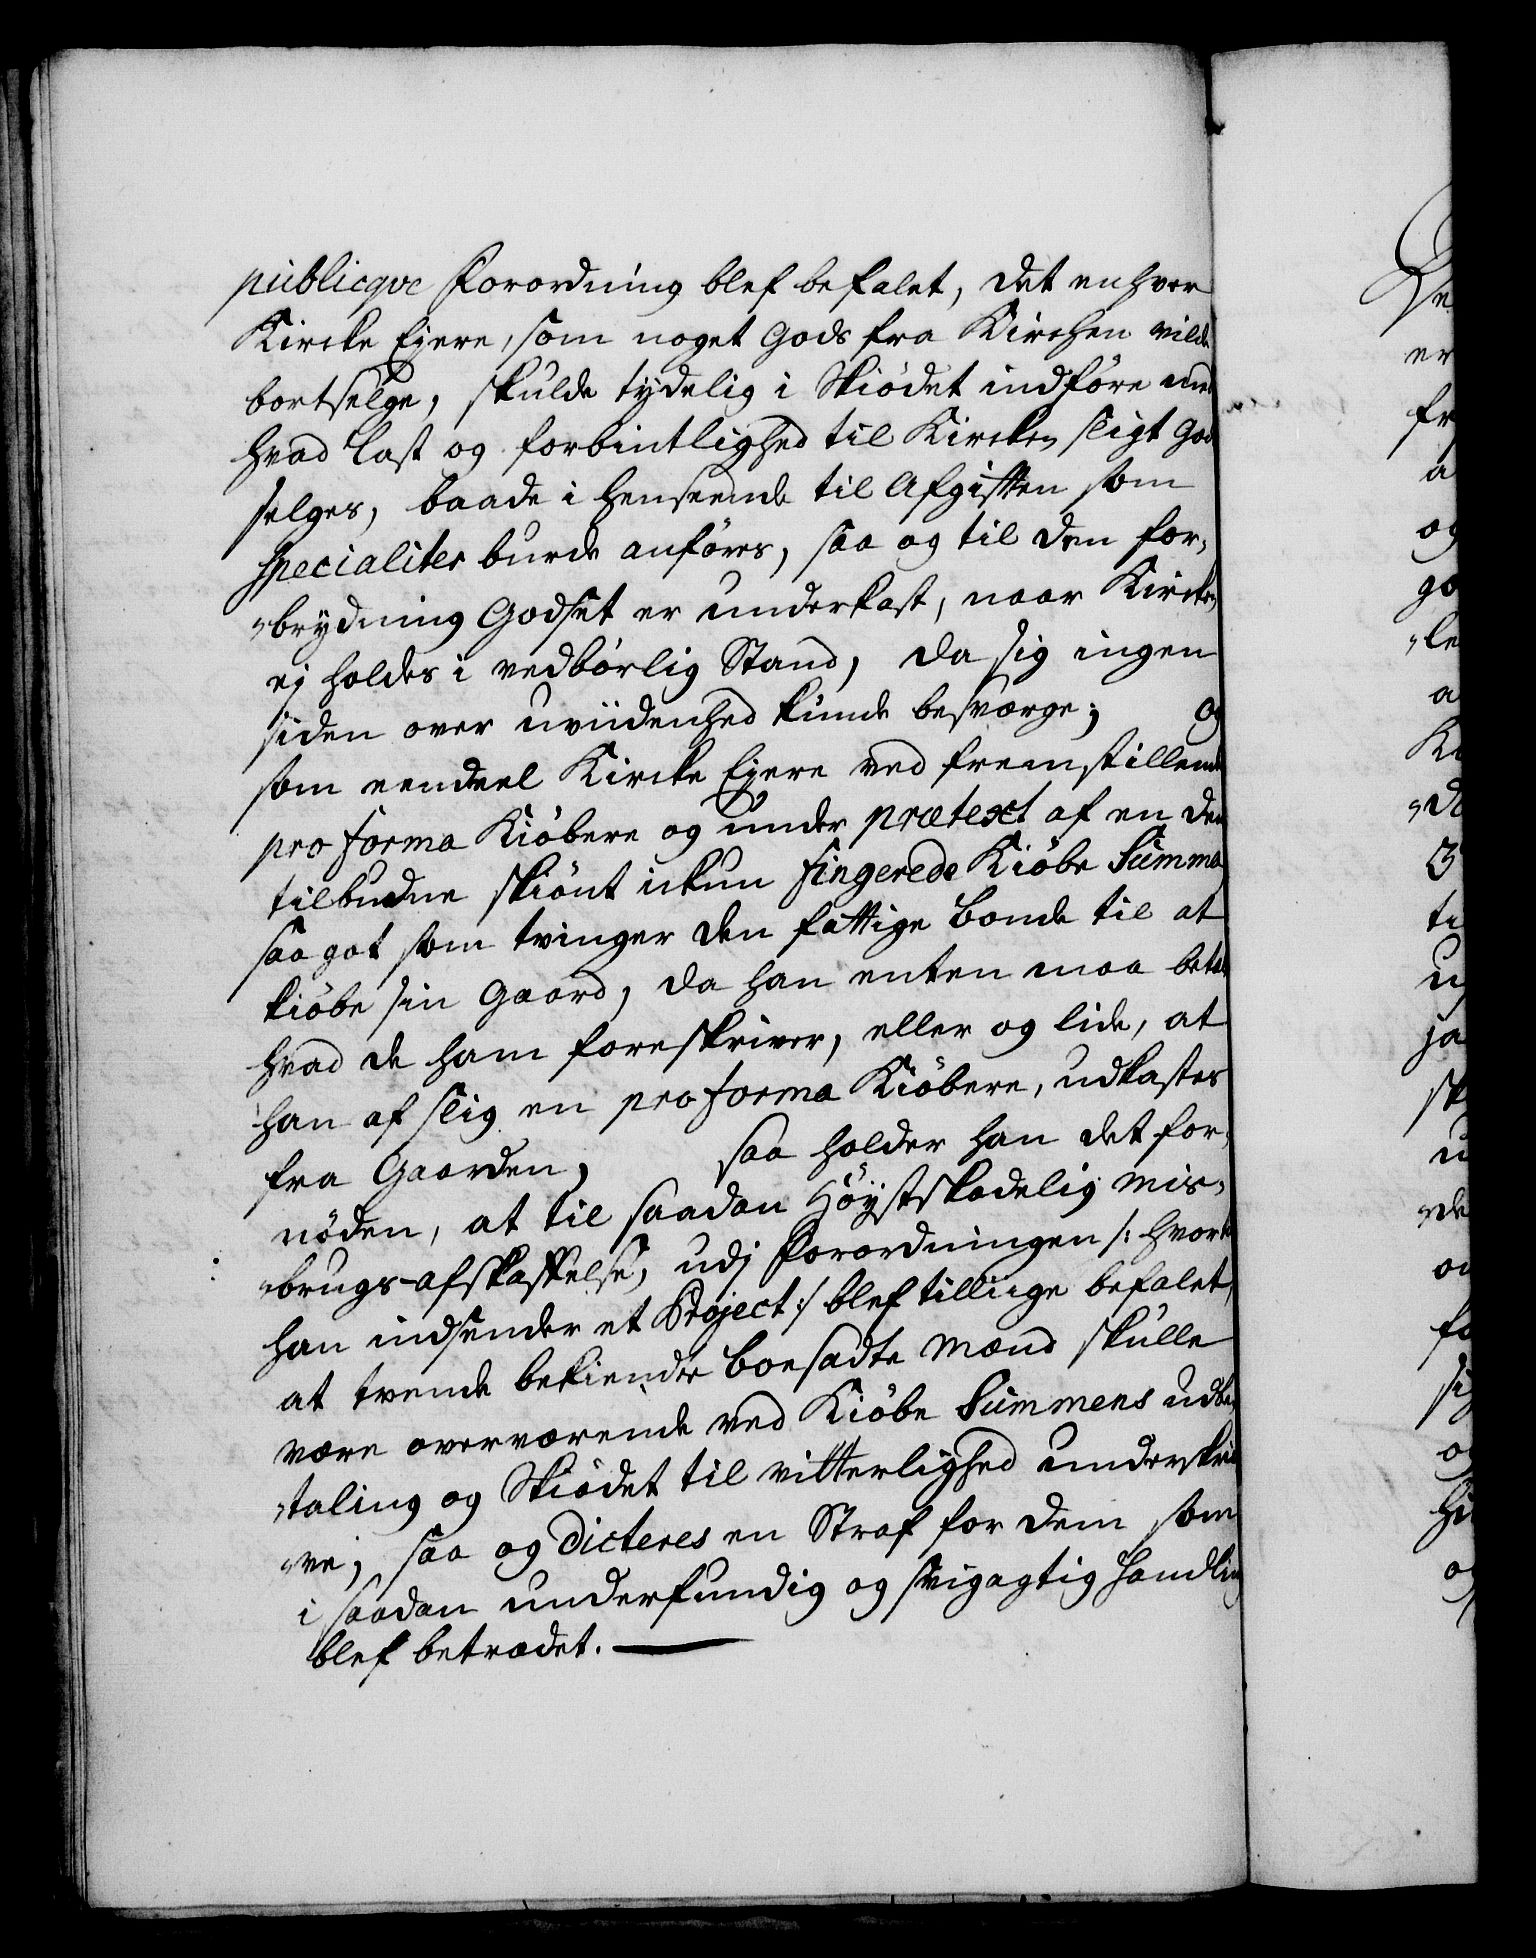 publicqve Forordning blef befalet, det enhver
Kircke Eyere, som noget Gods fra Kirchen vilde
bortselge, skulde tydelig i Skiødet indføre med
hvad Last og forbintlighed til Kircken sligt God
selges, baade i henseende til Afgiften som
specialiter burde anføres, saa og til den for„
„brydning Godset er underkast, naar Kircken
ej holdes i vedbørlig Stand, da sig ingen
siden over uviidenhed kunde besværge; og
som eendeel Kircke Eyere ved fremstillende
pro forma Kiøbere og under prætext af en dem
tilbudne skiønt ickun fingerede Kiøbe Summa
saa got som tvinger den fattige Bonde til at
kiøbe sin Gaard, da han enten maa betale
hvad de ham foreskriver, eller og lide, at
han af slig en pro forma Kiøbere, udkastes
fra Gaarden, saa holder han det for„
nøden, at til saadan Høystskadelig mis„
„brugs-afskaffelse, udj Forordningen /: hvortil
han indsender et Project :/ blef tilliige befalet,
at tvende bekiendte Boesadte Mænd skulle
være overværende ved Kiøbe Summens udbe„
„taling og Skiødet til vitterlighed underskri
„ve; saa og dicteres en Straf for dem som
i saadan underfundig og svigagtig Handling
blef betrædet.